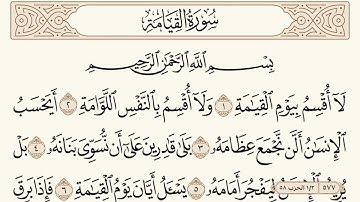 سُورَةُ القِيَامَةِ
بِسْمِ اللَّهِ الرَّحْمَٰنِ الرَّحِيمِ
لَا أُقْسِمُ بِيَوْمِ الْقِيَامَةِ ١ وَلَا أُقْسِمُ بِالنَّفْسِ اللَّوَّامَةِ ٢ أَيَحْسَبُ
الْإِنسَانُ أَلَّن نَّجْمَعَ عِظَامَهُ ٣ بَلَىٰ قَادِرِينَ عَلَىٰ أَن نُّسَوِّيَ بَنَانَهُ ٤ بَلْ
يُرِيدُ الْإِنسَانُ لِيَفْجُرَ أَمَامَهُ ٥ يَسْأَلُ أَيَّانَ يَوْمُ الْقِيَامَةِ ٦ فَإِذَا بَرِقَ
٥٧٧ ١/٢ الحزب ٥٨